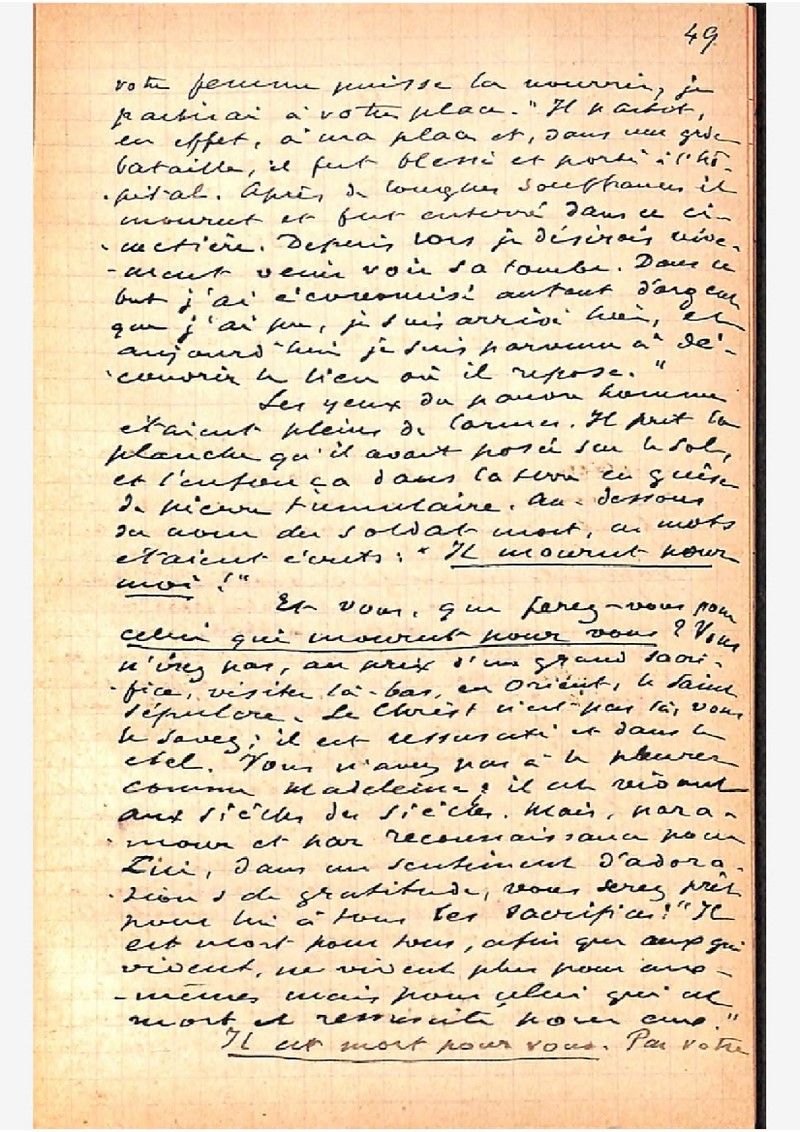 49
votre femme puisse la nourrir, je
partirai à votre place." Il partit,
en effet, à ma place et, dans une grde
bataille, il fut blessé et porté à l'hô-
pital. Après de longues souffrances il
mourut et fut enterré dans ce ci-
metière. Depuis lors je désirais vive-
-ment venir voir sa tombe. Dans ce
but j'ai économisé autant d'argent
que j'ai pu, je suis arrivé hier, et
aujourd'hui je suis parvenu à dé-
couvrir le lieu où il repose."
Les yeux du pauvre homme
étaient pleins de larmes. Il prit la
planche qu'il avait posée sur le sol,
et l'enfonça dans la terre en guise
de pierre tumulaire. Au-dessous
du nom du soldat mort, ces mots
étaient écrits: "Il mourut pour
moi!"
Et vous, que ferez-vous pour
celui qui mourut pour vous? Vous
n'irez pas, au prix d'un grand sacri-
fice, visiter là-bas, en Orient, le Saint
Sépulcre. Le Christ n'est pas là, vous
le savez; il est ressuscité et dans le
ciel. Vous n'avez pas à le pleurer
comme Madeleine; il est vivant
aux siècles des siècles. Mais, par a-
mour et par reconnaissance pour
Lui, dans un sentiment d'adora-
tion & de gratitude, vous serez prêt
pour lui à tous les sacrifices! "Il
est mort pour tous, afin que ceux qui
vivent, ne vivent plus pour eux-
-mêmes mais pour celui qui est
mort et ressuscité pour eux."
Il est mort pour vous. Par votre